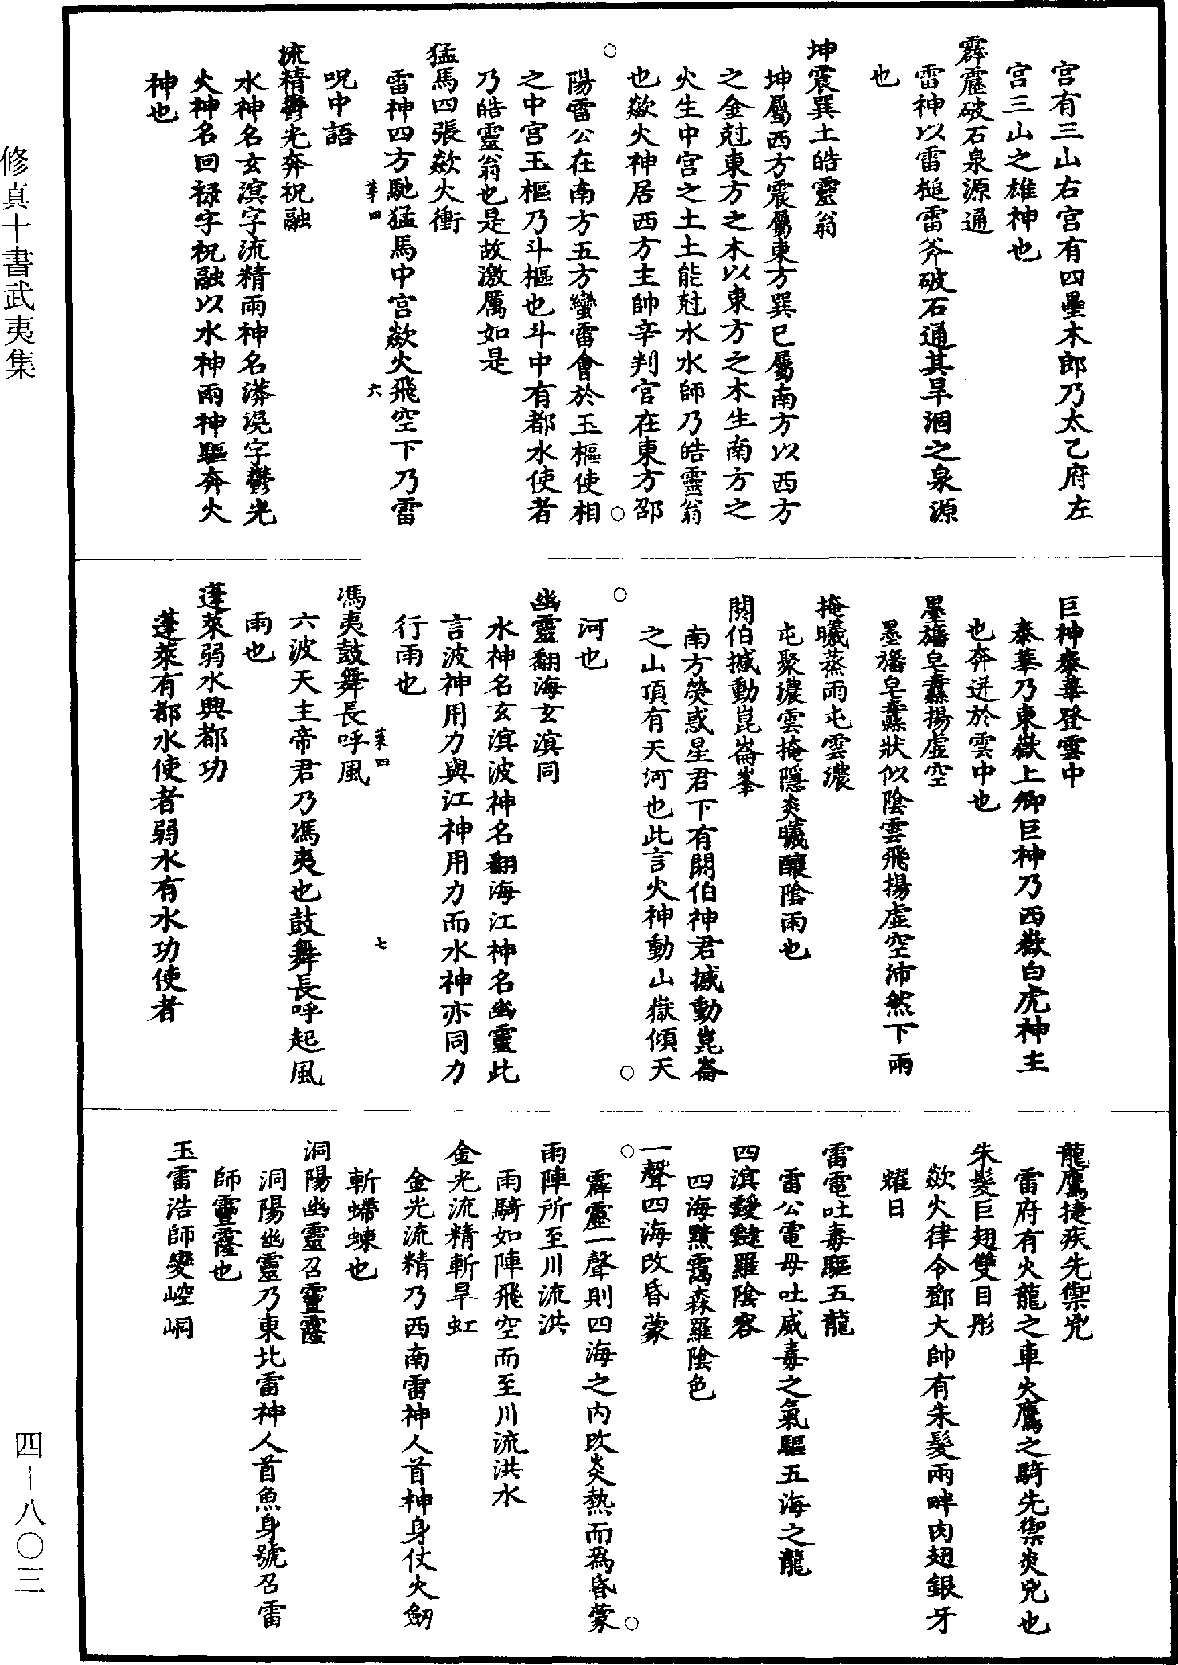 宫有三山右宫有四壘木郎乃太乙府左
宫三山之雄神也
霹靂破石泉源通
雷神以雷槌雷斧破石通其旱涸之泉源
也
坤震巽土皓靈翁
坤屬西方震屬東方巽巳屬南方以西方
之金尅東方之木以東方之木生南方之
火生中宫之土土能尅水水師乃皓靈翁
也歘火神居西方主帥辛判官在東方邵
陽雷公在南方五方蠻雷會於玉樞使相
之中宫玉樞乃斗樞也斗中有都水使者
乃皓靈翁也是故激厲如是
猛馬四張歘火衝
雷神四方馳猛馬中宫歘火飛空下乃雷
呪中語
流精鬱光奔祝融
水神名玄溟字流精雨神名漭滉字鬱光
火神名回禄字祝融以水神雨神驅奔火
神也
巨神泰華登雲中
泰華乃東嶽上卿巨神乃西嶽白虎神主
也奔迸於雲中也
墨旛皂纛揚虚空
墨旛皂纛狀似陰雲飛揚虚空沛然下雨
掩曦蒸雨屯雲濃
屯聚濃雲掩隱炎曦釀陰雨也
閼伯撼動崑崙峯
南方熒惑星君下有閼伯神君撼動崑崙
之山頂有天河也此言火神動山嶽傾天
河也
幽靈翻海玄溟同
水神名玄溟波神名翻海江神名幽靈此
言波神用力與江神用力而水神亦同力
行雨也
馮夷鼓舞長呼風
六波天主帝君乃馮夷也鼓舞長呼起風
雨也
蓬萊弱水興都功
蓬萊有都水使者弱水有水功使者
龍鷹捷疾先禦兇
雷府有火龍之車火鷹之騎先禦炎兇也
朱髮巨翅雙目彤
歘火律令鄧大帥有朱髮兩畔肉翅銀牙
耀日
雷電吐毒驅五龍
雷公電母吐威毒之氣驅五海之龍
四溟靉靆羅陰容
四海黲靄森羅陰色
一聲四海改昏蒙
霹靂一聲則四海之内改炎熱而爲昏蒙
雨陣所至川流洪
雨騎如陣飛空而至川流洪水
金光流精斬旱虹
金光流精乃西南雷神人首神身仗火劒
斬螮蝀也
洞陽幽靈召靈𩆜
洞陽幽靈乃東北雷神人首魚身號召雷
師靈𩆜也
玉雷浩師變崆峒
第四
六
第四
七
修真十書武夷集
四—八〇三